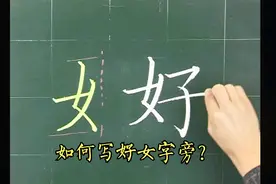 女 好
如何写好女字旁？